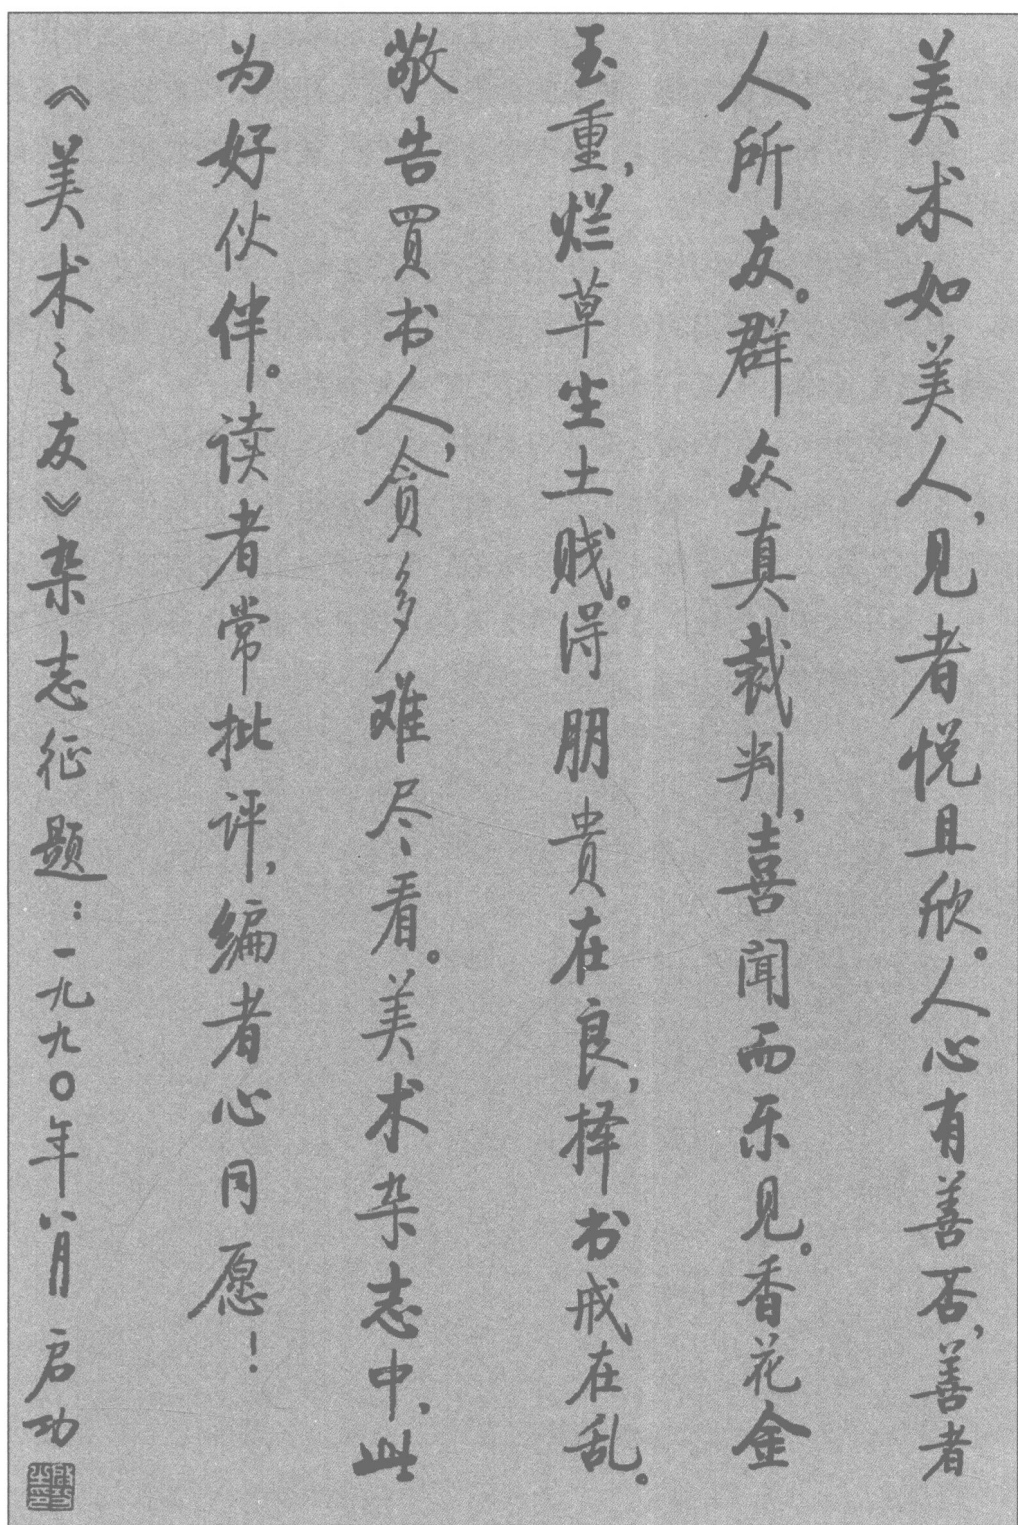 美术如美人，见者悦且欣。人心有善否，善者
人所友。群众真裁判，喜闻而乐见。香花金
玉重，烂草尘土贱。得朋贵在良，择书戒在乱。
敬告買书人，貪多难尽看。美术杂志中，此
为好伙伴。读者常批评，编者心同愿！
《美术之友》杂志征题：一九九〇年八月 启功